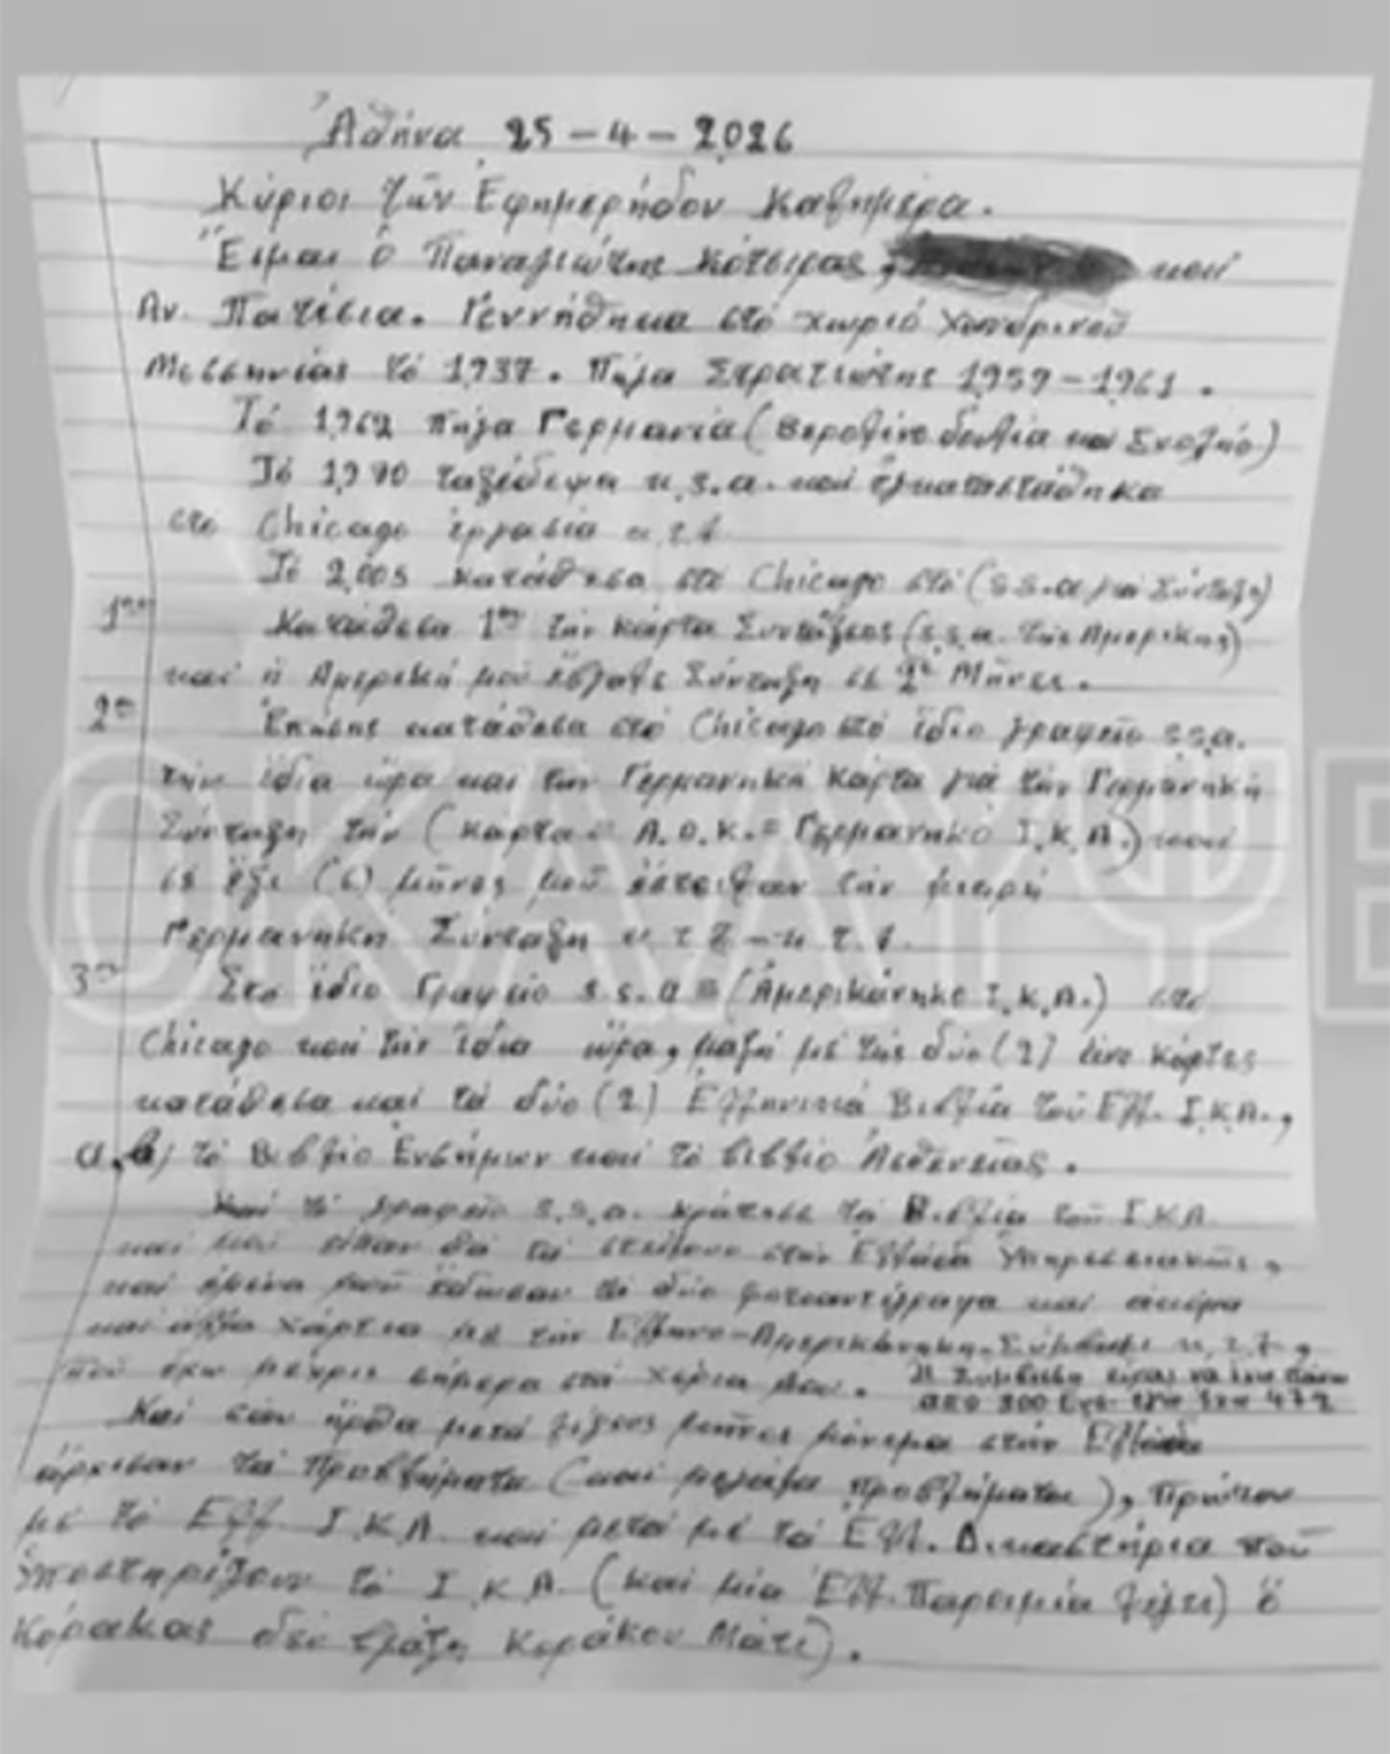 Ἀθήνα 25-4-2026
Κύριοι τῶν Ἐφημερήδον Καθημέρα.
Ἔιμαι ὁ Παναγιώτης Κότσιρας, καί
Αν. Πατίσια. Γεννήθηκα στό χωριό
Μεσσηνίας τό 1937. Πήγα Στρατιώτης 1959-1961.
Τό 1962 πήγα Γερμανία ( δουλιά και Σχολήο)
Τό 1970 ταξίδεψα u.s.a. καί ἐγκαταστάθηκα
στο Chicago ἐργασία κ.τ.λ.
Τό 2005 κατάθεσα στό Chicago στό (s.s.a γιά Σύνταξη)
1ον Κατάθεσα 1ον τήν κάρτα Συντάξεος (s.s.a. τής Αμερικής)
καί ἡ Αμερική μού ἔβγαλε Σύνταξη σε 2 Μήνες.
2ον Ἐπισης κατάθεσα στό Chicago στό ἴδιο γραφείο s.s.a.
τήν ἴδια ὥρα και την Γερμανηκή κάρτα γιά τήν Γερμανηκή
Σύνταξη τήν (κάρτα = A.O.K. = Γερμανηκό Ι.Κ.Α.) καί
σέ ἕξι (6) μῆνες μοῦ ἔστειλαν τήν μικρή
Γερμανηκή Σύνταξη κ.τ.λ - κ.τ.λ.
3ον Στο ἴδιο Γραφείο s.s.a = (Ἀμερικάνηκο Ι.Κ.Α.) στο
Chicago καί τήν ἴδια ὥρα, μαζή μέ τής δύο (2) κάρτες
κατάθεσα καί τά δύο (2) Ἑλληνικά Βιβλία τού Ελλ. Ι.Κ.Α.,
α, β) τό Βιβλίο Ἐνσήμων καί τό βιβλίο Ἀσθενείας.
Καί τό γραφείο s.s.a. κράτησε τά Βιβλία τοῦ Ι.Κ.Α.
καί μού είπαν θά τά στείλουν στήν Ἑλλάδα Ὑπηρεσιακῶς,
καί ἐμένα μοῦ ἔδωσαν τά δύο φοτοαντίγραφα καί ἀκόμα
καί άλλα χάρτια με τήν Ἑλληνο-Αμερικάνηκη Σύμβαση κ.τ.λ,
ποῦ έχω μέχρις σήμερα στά χέρια μου. Η Συμβαση είναι να έχω πάνω
απο 300 Ενσ. εγω έχω 472
Καί σάν ἦρθα μετά λίγους μῆνες μόνιμα στήν Ελλάδα
ἄρχισαν τά Προβλήματα (καί μεγάλα προβλήματα), Πρώτον
μέ τό Ελλ. Ι.Κ.Α. καί μετά μέ τά Ελλ. Δικαστήρια ποῦ
ὑποστηρίζουν τό Ι.Κ.Α. (καί μία Ἑλλ. Παροιμία λέγει) ὁ
Κόρακας δέν βγάζη Κοράκου Μάτι).
ΑΠΟΚΑΛΥΨΕ